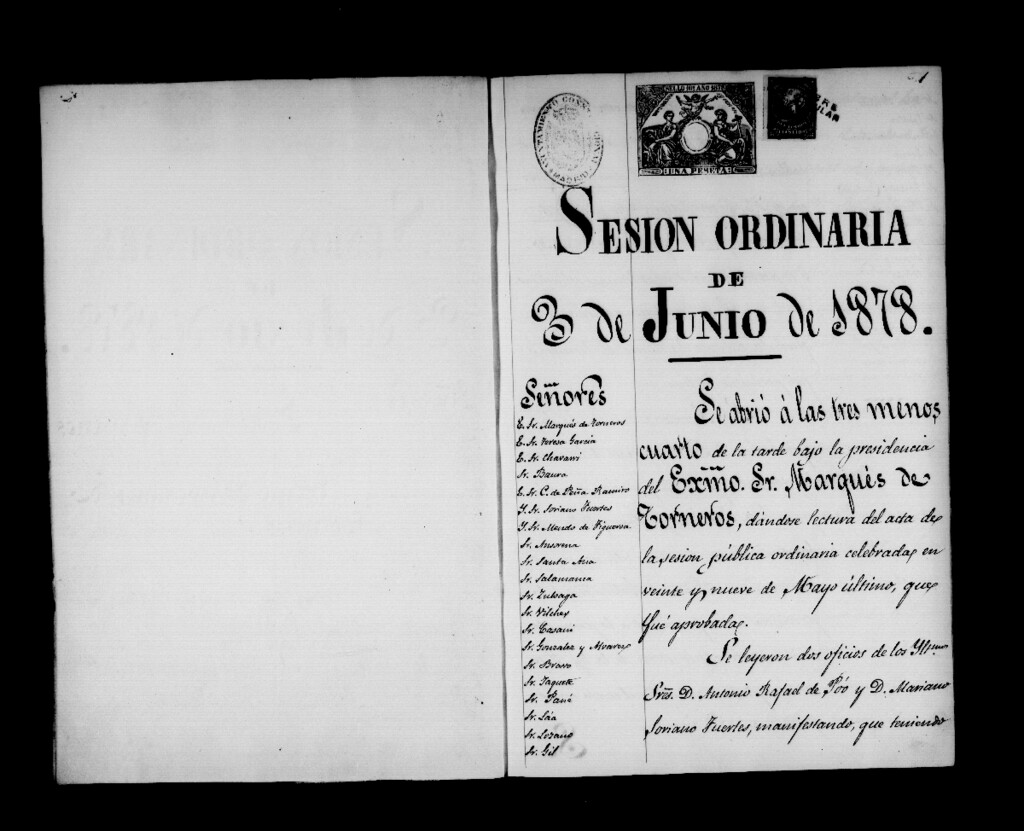 1
AYUNTAMIENTO CONSTITUCIONAL
MADRID
SELLO 11º AÑO 1878
UNA PESETA
SESION ORDINARIA
DE
3 de JUNIO de 1878.
Señores
E. Sr. Marqués de Torneros
E. Sr. Teresa García
E. Sr. Chavarri
Sr. Baura
E. Sr. C. de Peña Ramiro
Y. Sr. Soriano Fuertes
Y. Sr. Mendo de Figueroa
Sr. Ansorena
Sr. Santa Ana
Sr. Salamanca
Sr. Zuloaga
Sr. Vilches
Sr. Casani
Sr. Gonzalez y Alvarez
Sr. Bravo
Sr. Jaquete
Sr. Pané
Sr. Sáa
Sr. Lozano
Sr. Gil
Se abrió á las tres menos
cuarto de la tarde bajo la presidencia
del Exmo. Sr. Marqués de
Torneros, dándose lectura del acta de
la sesion pública ordinaria celebrada en
veinte y nueve de Mayo último, que
fué aprobada.
Se leyeron dos oficios de los Yltmos
Sres. D. Antonio Rafael de Póo y D. Mariano
Soriano Fuertes, manifestando, que teniendo